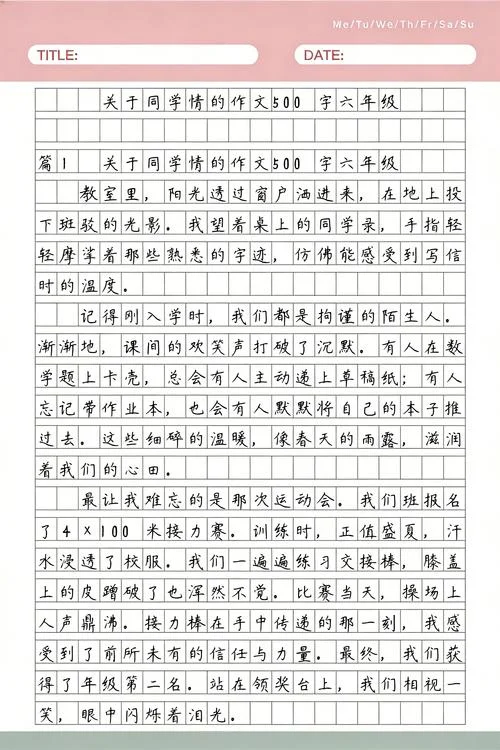 Me/Tu/We/Th/Fr/Sa/Su
TITLE: DATE:
关于同学情的作文500 字六年级
篇1 关于同学情的作文500 字六年级
教室里，阳光透过窗户洒进来，在地上投
下斑驳的光影。我望着桌上的同学录，手指轻
轻摩挲着那些熟悉的字迹，仿佛能感受到写信
时的温度。
记得刚入学时，我们都是拘谨的陌生人。
渐渐地，课间的欢笑声打破了沉默。有人在数
学题上卡壳，总会有人主动递上草稿纸；有人
忘记带作业本，也会有人默默将自己的本子推
过去。这些细碎的温暖，像春天的雨露，滋润
着我们的心田。
最让我难忘的是那次运动会。我们班报名
了4×100 米接力赛。训练时，正值盛夏，汗
水浸透了校服。我们一遍遍练习交接棒，膝盖
上的皮蹭破了也浑然不觉。比赛当天，操场上
人声鼎沸。接力棒在手中传递的那一刻，我感
受到了前所未有的信任与力量。最终，我们获
得了年级第二名。站在领奖台上，我们相视一
笑，眼中闪烁着泪光。